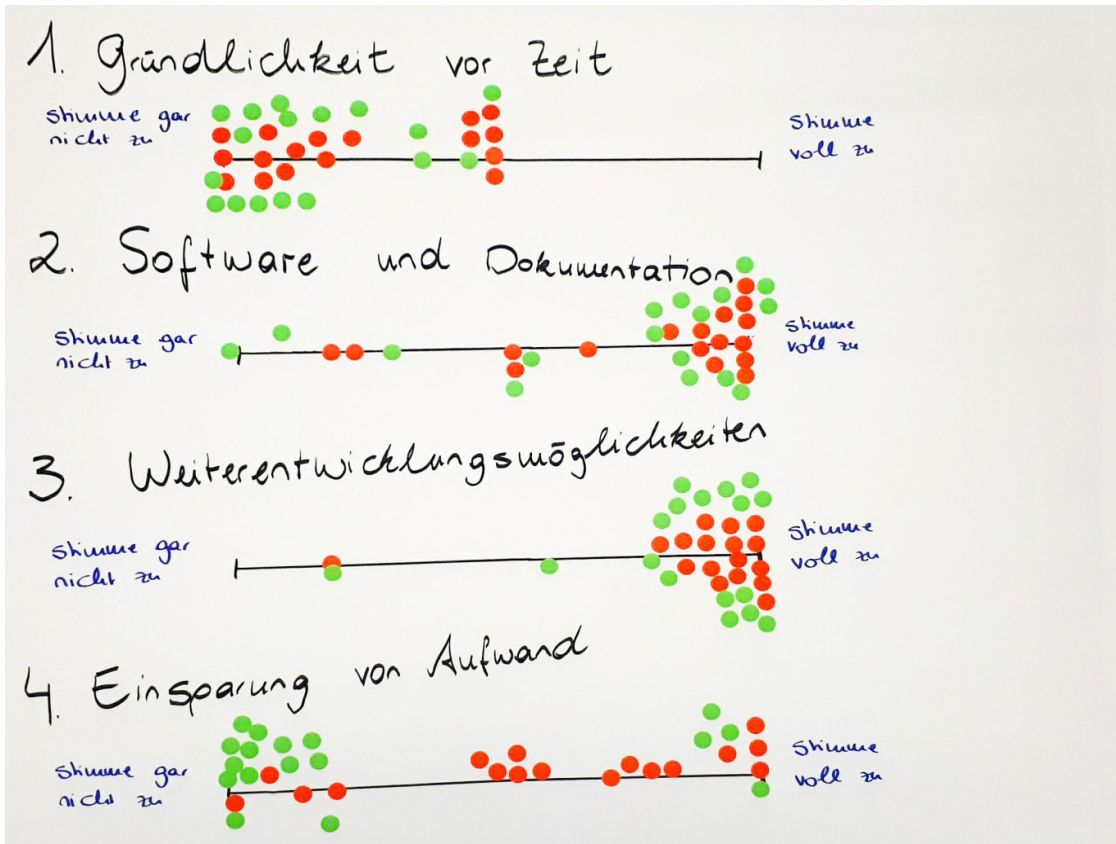 1. Gründlichkeit vor Zeit
stimme gar
nicht zu
stimme
voll zu
2. Software und Dokumentation
stimme gar
nicht zu
stimme
voll zu
3. Weiterentwicklungsmöglichkeiten
stimme gar
nicht zu
stimme
voll zu
4. Einsparung von Aufwand
stimme gar
nicht zu
stimme
voll zu